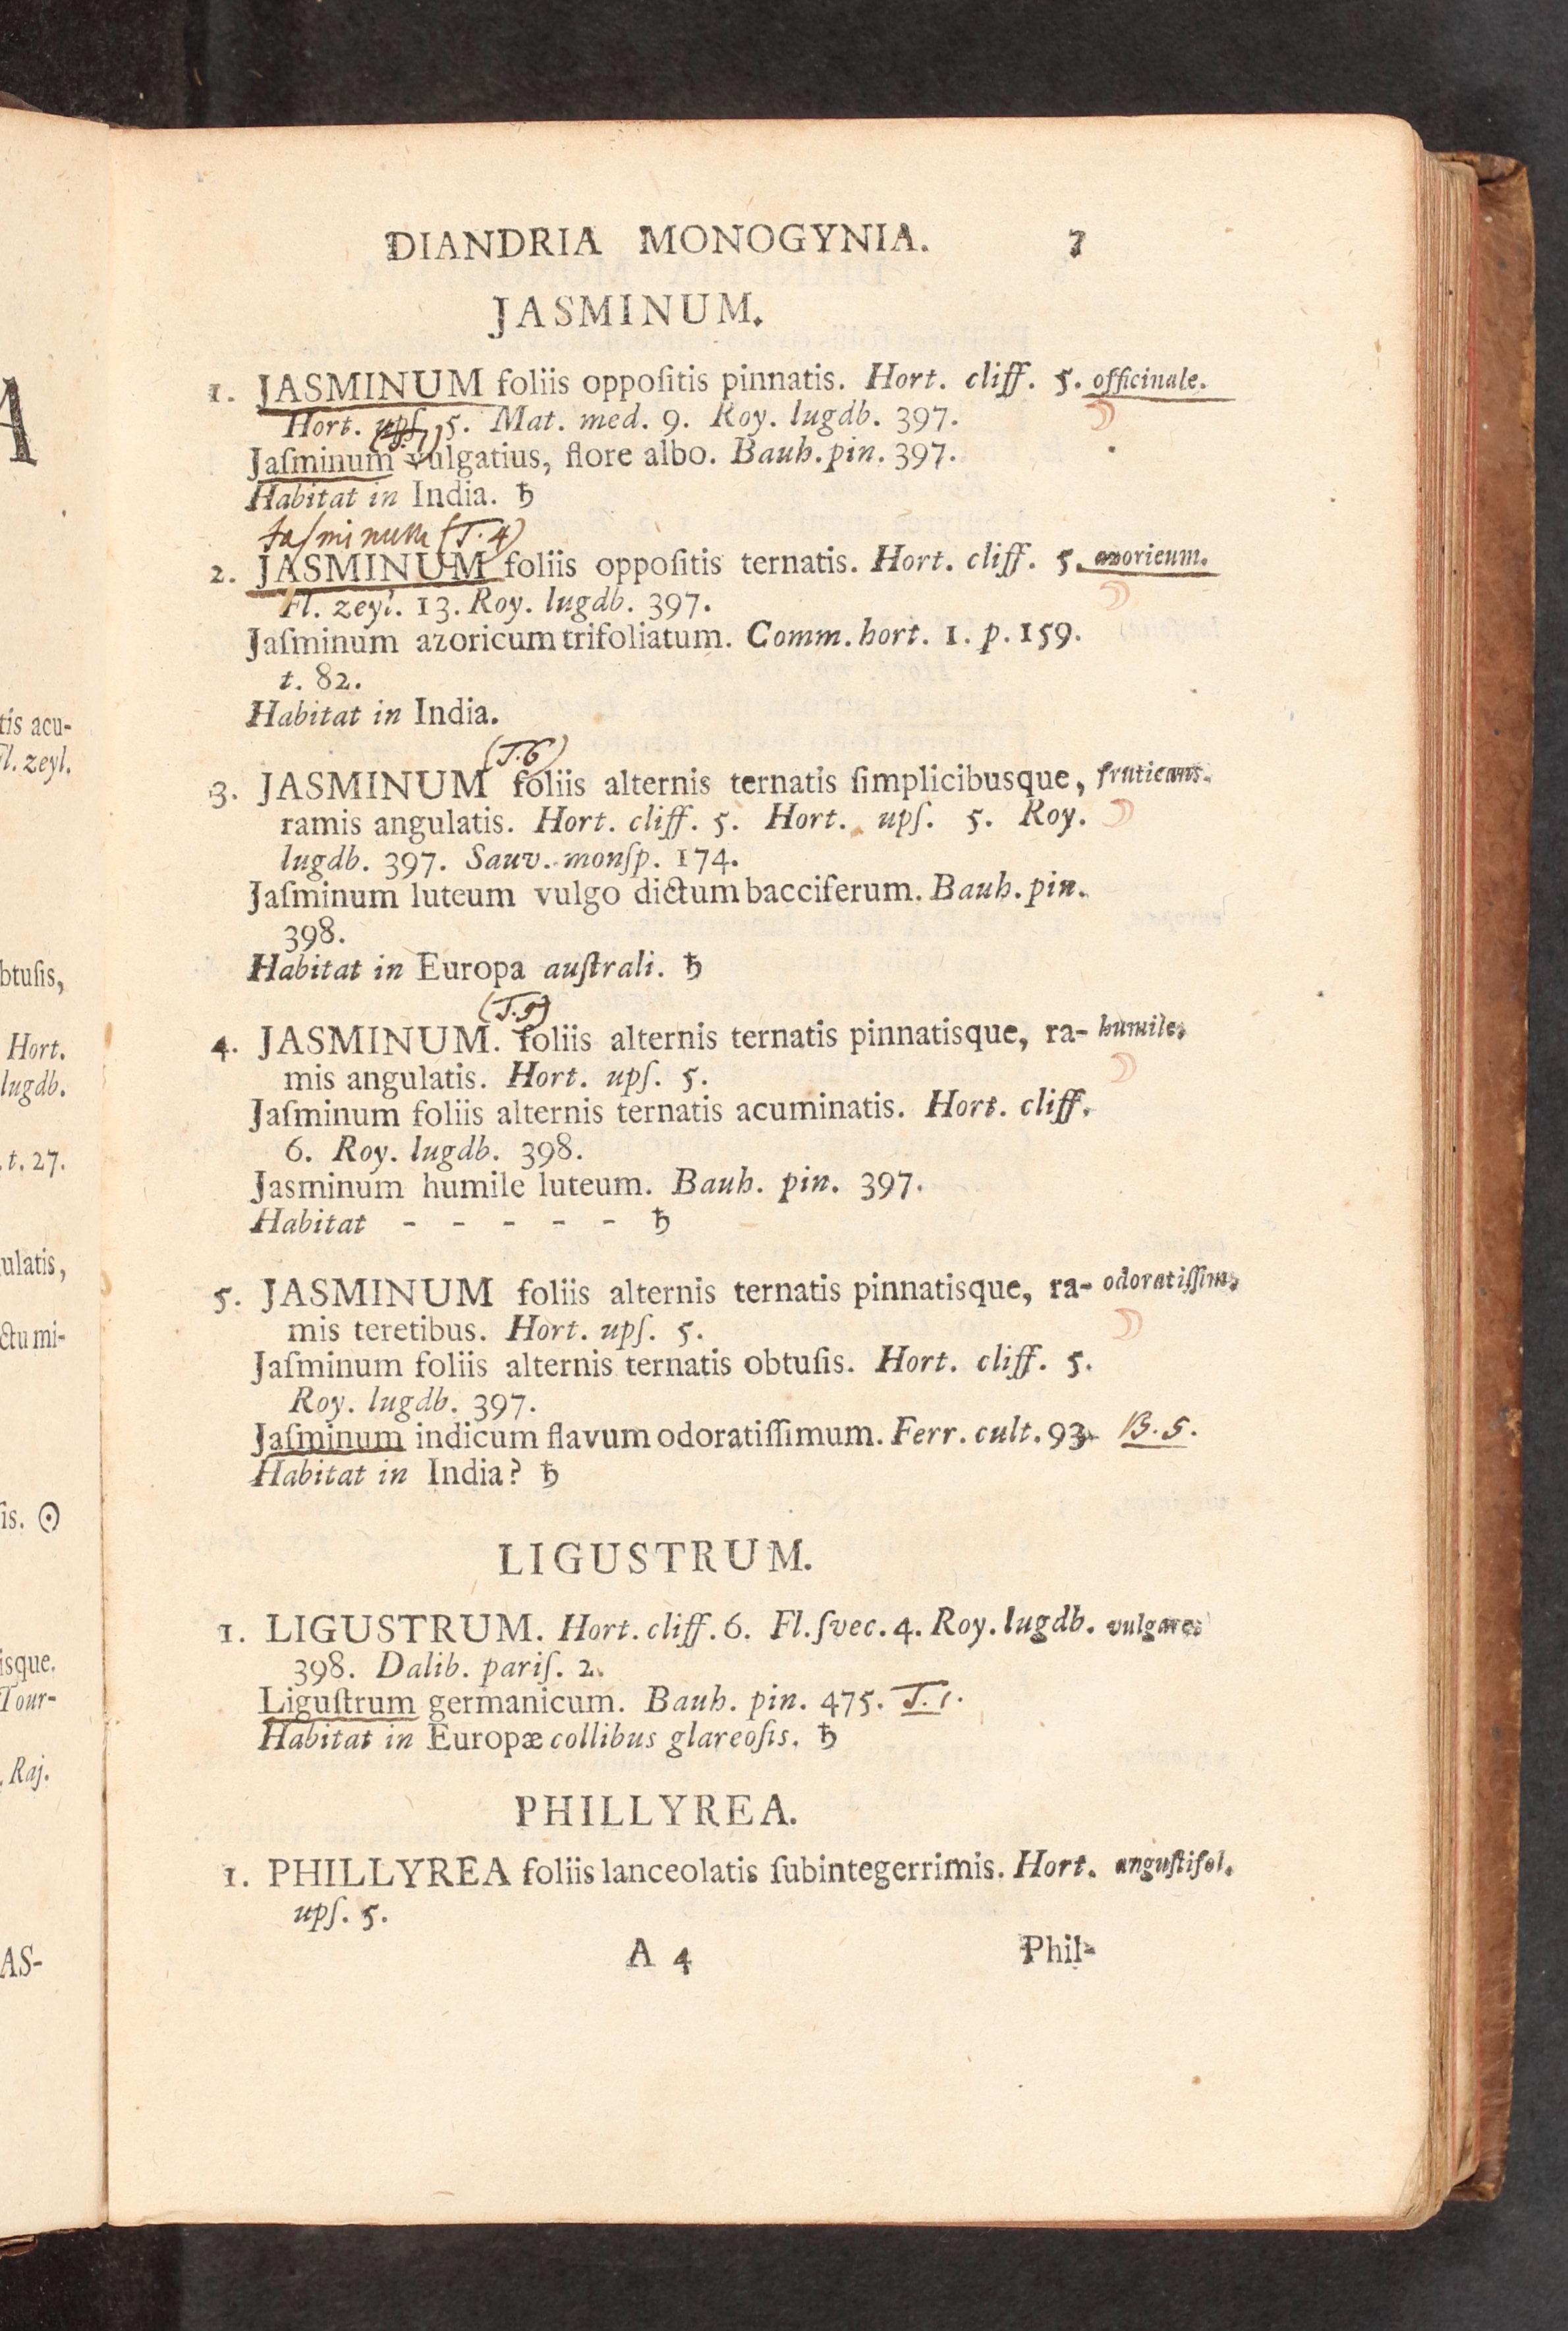 DIANDRIA MONOGYNIA. 7
JASMINUM.
1. JASMINUM foliis oppoſitis pinnatis. Hort. cliff. 5. officinale.
Hort. upſ. 5. Mat. med. 9. Roy. lugdb. 397.
Jaſminum vulgatius, flore albo. Bauh. pin. 397.
Habitat in India. ♄
Jaſminum (T. 4)
2. JASMINUM foliis oppoſitis ternatis. Hort. cliff. 5. azoricum.
Fl. zeyl. 13. Roy. lugdb. 397.
Jaſminum azoricum trifoliatum. Comm. hort. 1. p. 159.
t. 82.
Habitat in India.
(T.6)
3. JASMINUM foliis alternis ternatis ſimplicibusque, fruticans.
ramis angulatis. Hort. cliff. 5. Hort. upſ. 5. Roy.
lugdb. 397. Sauv. monſp. 174.
Jaſminum luteum vulgo dictum bacciferum. Bauh. pin.
398.
Habitat in Europa auſtrali. ♄
4. JASMINUM. foliis alternis ternatis pinnatisque, ra- humile.
mis angulatis. Hort. upſ. 5.
Jaſminum foliis alternis ternatis acuminatis. Hort. cliff.
6. Roy. lugdb. 398.
Jasminum humile luteum. Bauh. pin. 397.
Habitat - - - - - ♄
5. JASMINUM foliis alternis ternatis pinnatisque, ra- odoratiſſim.
mis teretibus. Hort. upſ. 5.
Jaſminum foliis alternis ternatis obtuſis. Hort. cliff. 5.
Roy. lugdb. 397.
Jaſminum indicum flavum odoratiſſimum. Ferr. cult. 93. B. 5.
Habitat in India? ♄
LIGUSTRUM.
1. LIGUSTRUM. Hort. cliff. 6. Fl. ſvec. 4. Roy. lugdb. vulgare.
398. Dalib. pariſ. 2.
Liguſtrum germanicum. Bauh. pin. 475. T. 1.
Habitat in Europæ collibus glareoſis. ♄
PHILLYREA.
1. PHILLYREA foliis lanceolatis ſubintegerrimis. Hort. anguſtifol.
upſ. 5.
A 4 Phil-
A
tis acu-
Fl. zeyl.
btuſis,
Hort.
lugdb.
. t. 27.
ulatis,
ctu mi-
ſis. ☉
isque.
Tour-
Raj.
AS-